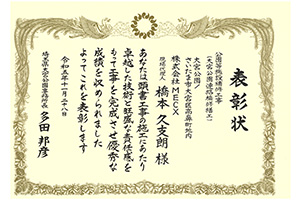 表彰状
公園等施設補修工事
(大宮公園遊園橋補修工)
大宮公園／
さいたま市大宮区高鼻町地内
株式会社MECX
現場代理人
橋本久支朗 様
あなたは頭書工事の施工にあたり
卓越した技術と旺盛な責任感を
もって工事を完成させ優秀な
成績を収められました
よってこれを表彰します
令和五年十一月二十八日
埼玉県大宮公園事務所長
多田 邦彦